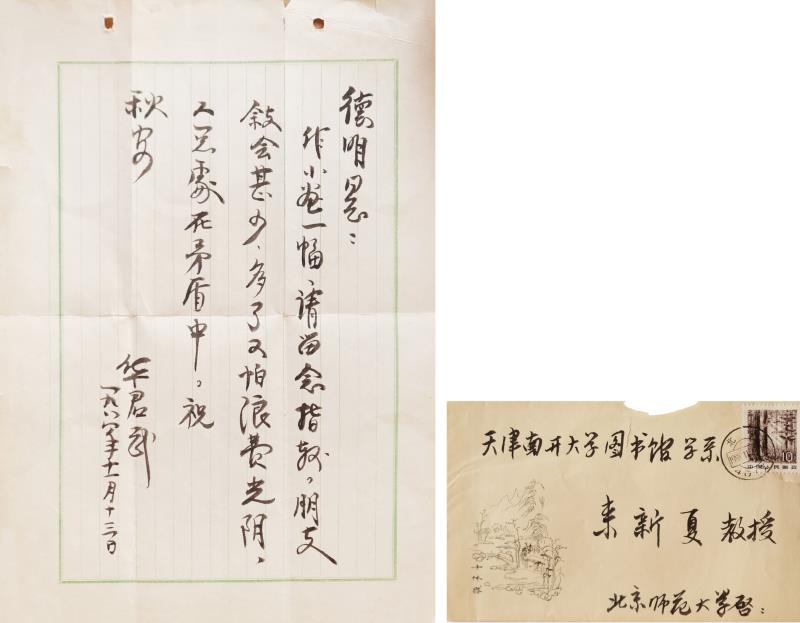 德明同志:
作小画一幅、请留念指教。朋友
叙会甚少、多了又怕浪费光阴、
人总处在矛盾中。祝
秋安
华君武
一九八六年十一月十三日
天津南开大学图书馆学系
来新夏教授
北京师范大学启:
10
中国人民邮政